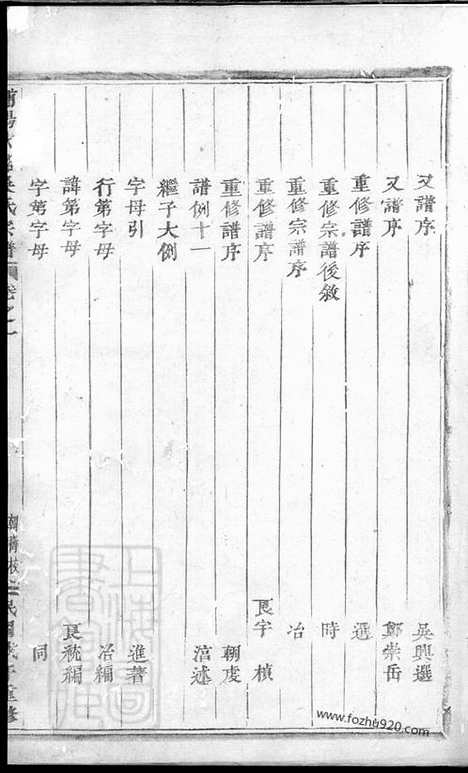 又譜序 吳興選
又譜序 鄭崇岳
重修譜序 選
重修宗譜後敘 時
重修宗譜序 冶
重修譜序 良宇 楨
重修譜序 朝虔
譜例十一 涫述
繼子大例
字母引 進著
行第字母 冶編
諱第字母 良統編
字第字母 同
氏宗譜 卷之一
上海圖書館
www.fozhu920.com